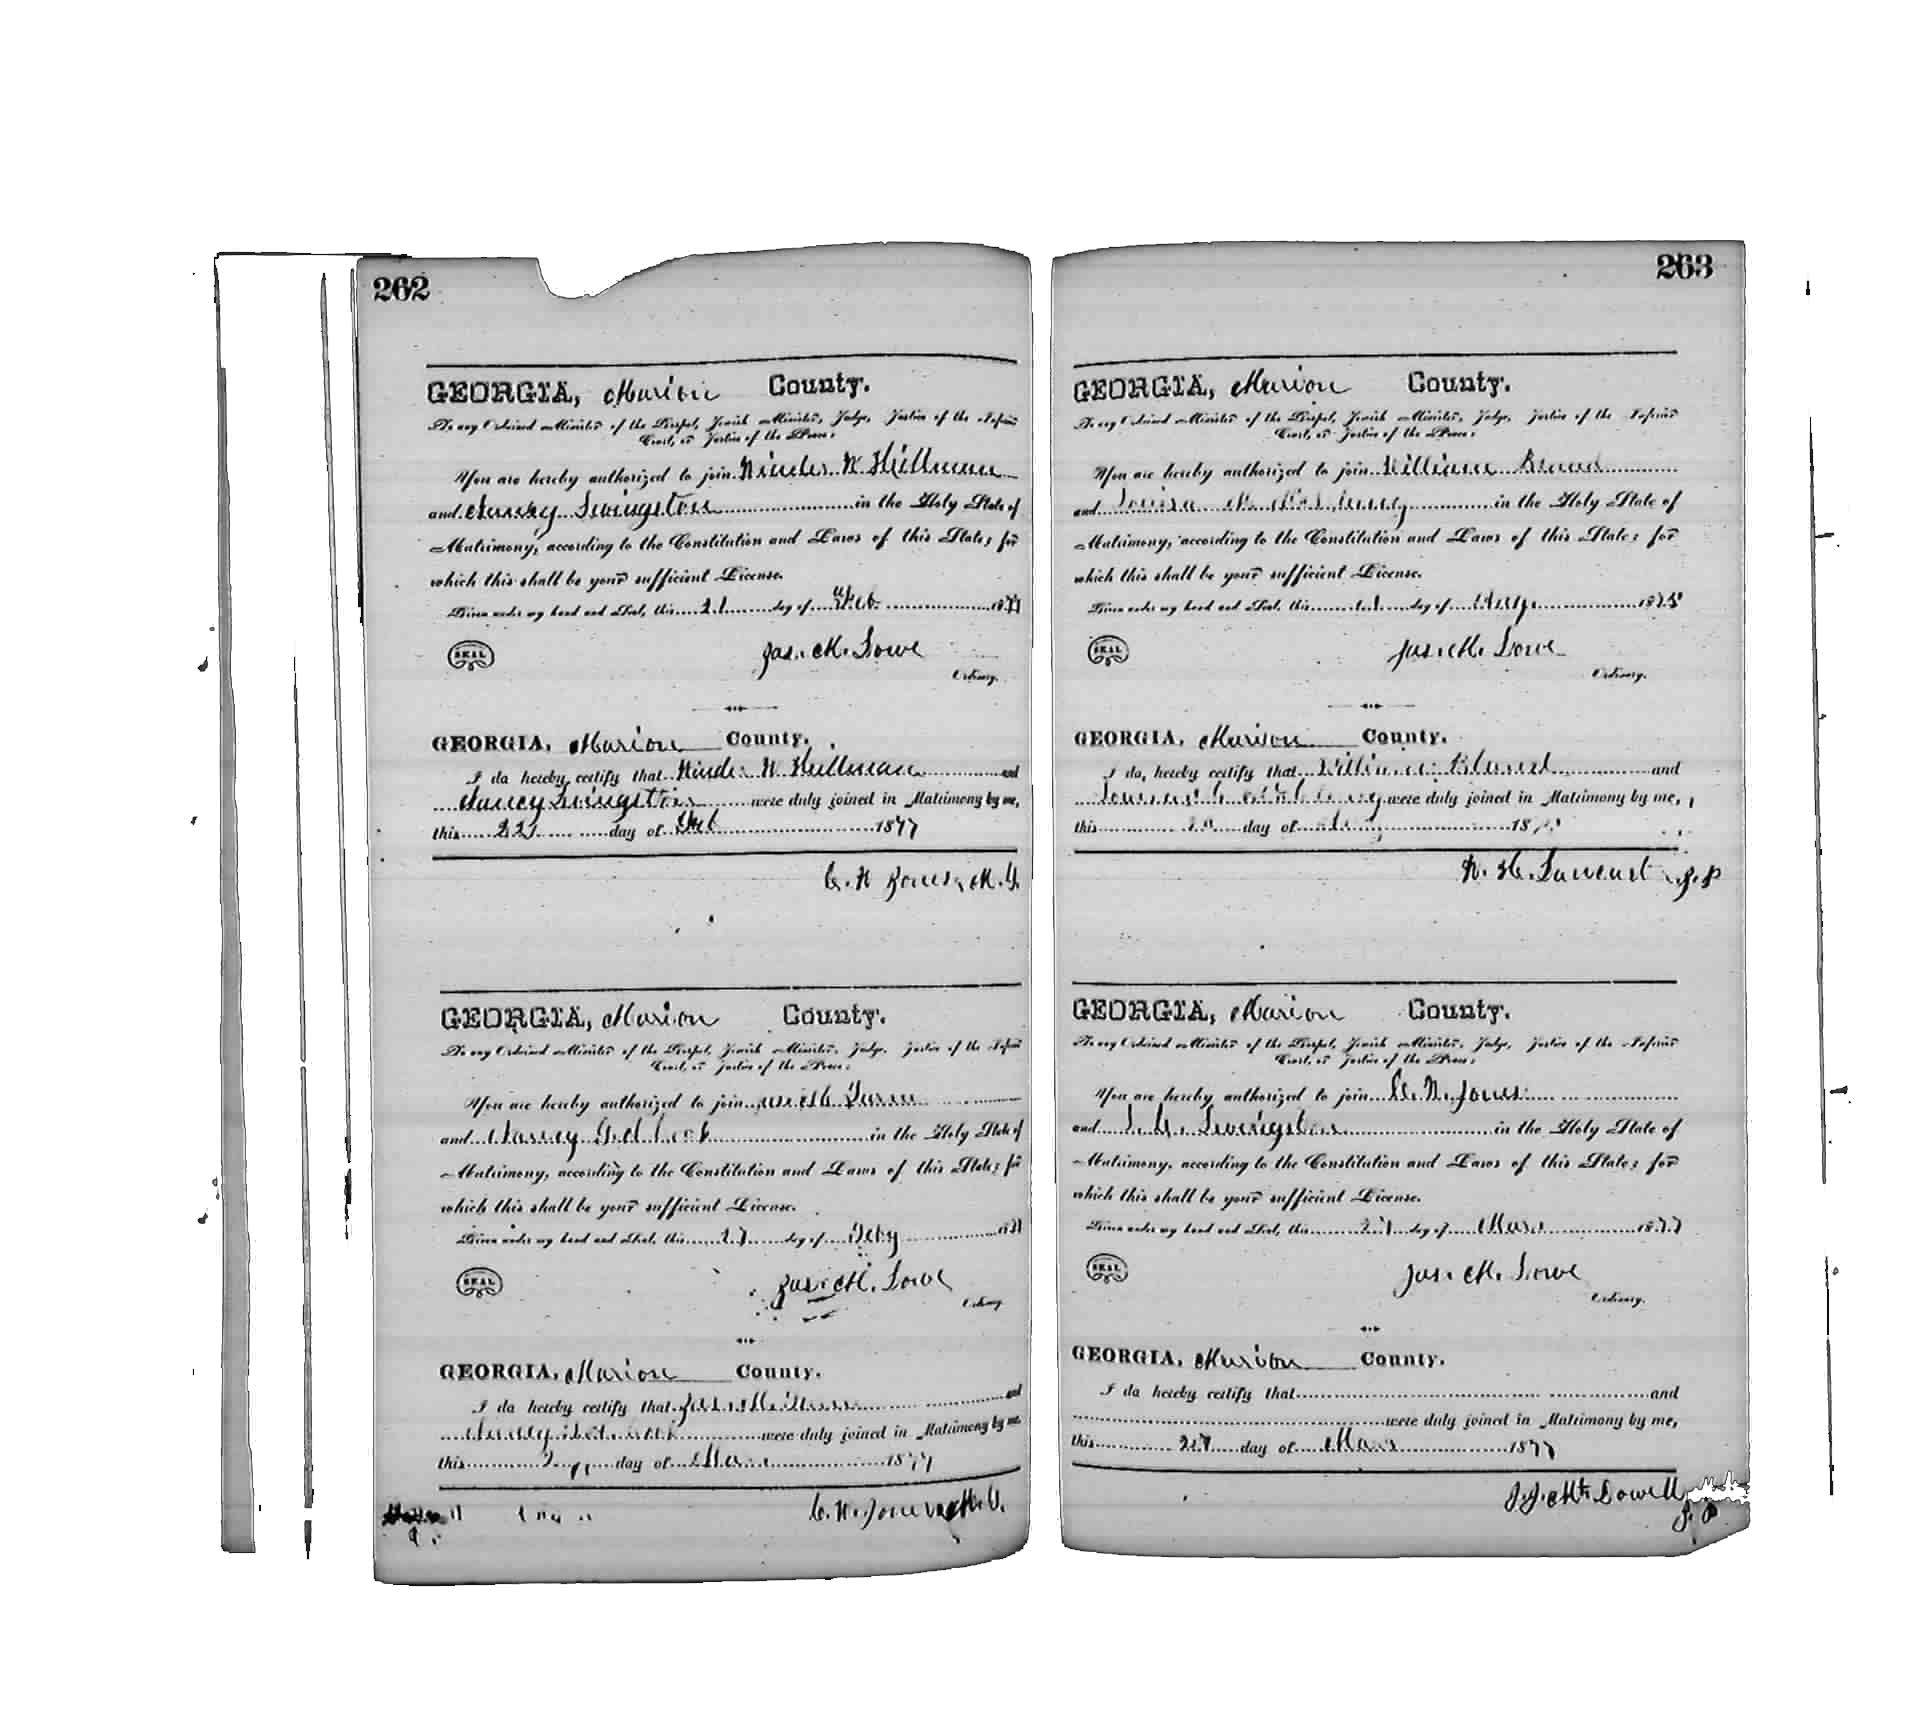 262
GEORGIA, Marion County.
To any Ordained Minister of the Gospel, Jewish Minister, Judge, Justice of the Inferior
Court, or Justice of the Peace:
You are hereby authorized to join
and Nancy Livingston in the Holy State of
Matrimony, according to the Constitution and Laws of this State; for
which this shall be your sufficient License.
Given under my hand and Seal, this 21 day of Feb 1877
SEAL Jas. M. Lowe
Ordinary.
GEORGIA, Marion County.
I do hereby certify that and
Nancy Livingston were duly joined in Matrimony by me,
this 22 day of Feb 1877
C. N. Jones, M. G.
GEORGIA, Marion County.
To any Ordained Minister of the Gospel, Jewish Minister, Judge, Justice of the Inferior
Court, or Justice of the Peace:
You are hereby authorized to join
and Nancy in the Holy State of
Matrimony, according to the Constitution and Laws of this State; for
which this shall be your sufficient License.
Given under my hand and Seal, this 27 day of Feby
SEAL Jas. M. Lowe
Ordinary.
GEORGIA, Marion County.
I do hereby certify that and
Nancy were duly joined in Matrimony by me
this day of 1877
C. N. Jones M. G.
263
GEORGIA, Marion County.
To any Ordained Minister of the Gospel, Jewish Minister, Judge, Justice of the Inferior
Court, or Justice of the Peace:
You are hereby authorized to join William
and Louisa in the Holy State of
Matrimony, according to the Constitution and Laws of this State; for
which this shall be your sufficient License.
Given under my hand and Seal, this day of Aug. 1875
SEAL Jas. M. Lowe
Ordinary.
GEORGIA, Marion County.
I do hereby certify that William and
were duly joined in Matrimony by me,
this day of 18
J. P.
GEORGIA, Marion County.
To any Ordained Minister of the Gospel, Jewish Minister, Judge, Justice of the Inferior
Court, or Justice of the Peace:
You are hereby authorized to join C. N. Jones
and Livingston in the Holy State of
Matrimony, according to the Constitution and Laws of this State; for
which this shall be your sufficient License.
Given under my hand and Seal, this 27 day of Mar 1877
SEAL Jas. M. Lowe
Ordinary.
GEORGIA, Marion County.
I do hereby certify that and
were duly joined in Matrimony by me,
this 27 day of Mar 1877
J. J. McDowell
J. P.